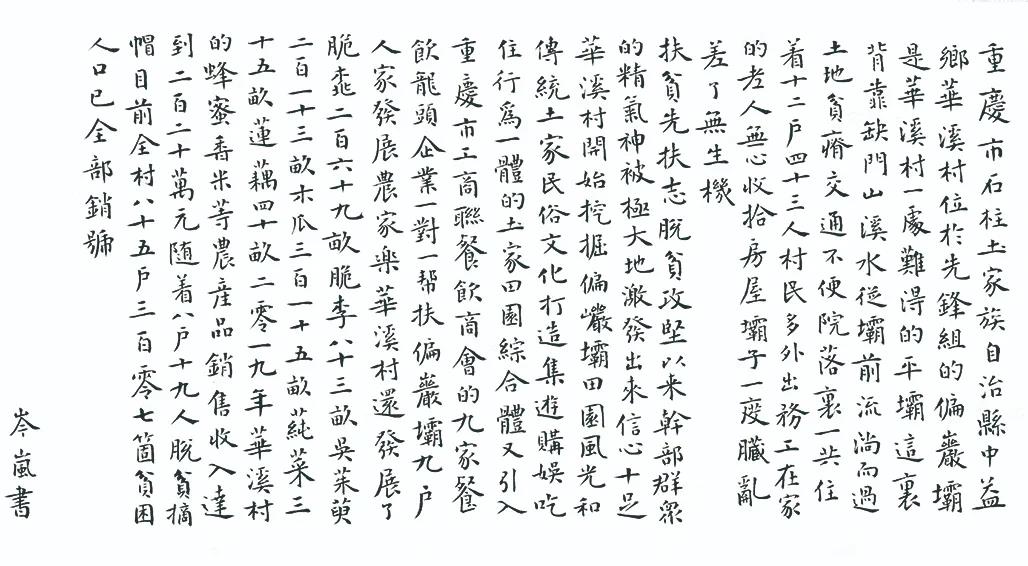 重慶市石柱土家族自治縣中益
鄉華溪村位於先鋒組的偏巖壩
是華溪村一處難得的平壩這裏
背靠缺門山溪水從壩前流淌而過
土地貧瘠交通不便院落裏一共住
着十二戶四十三人村民多外出務工在家
的老人無心收拾房屋壩子一度臟亂
差了無生機
扶貧先扶志脫貧攻堅以來幹部群眾
的精氣神被極大地激發出來信心十足
華溪村開始挖掘偏巖壩田園風光和
傳統土家民俗文化打造集遊購娛吃
住行爲一體的土家田園綜合體又引入
重慶市工商聯餐飲商會的九家餐
飲龍頭企業一對一帮扶偏巖壩九戶
人家發展農家樂華溪村還發展了
脆桃二百六十九畝脆李八十三畝吳茱萸
二百一十三畝木瓜三百一十五畝蒓菜三
十五畝蓮藕四十畝二零一九年華溪村
的蜂蜜香米等農産品銷售收入達
到二百二十萬元随着八戶十九人脫貧摘
帽目前全村八十五戶三百零七箇貧困
人口已全部銷號
岑嵐書